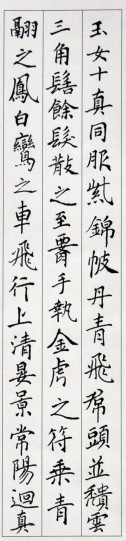 玉女十真同服紫錦帔丹青飛帬頭並穨雲
三角髻餘髮散之至腰手執金虎之符乗青
翮之鳳白鸞之車飛行上清晏景常陽迴真